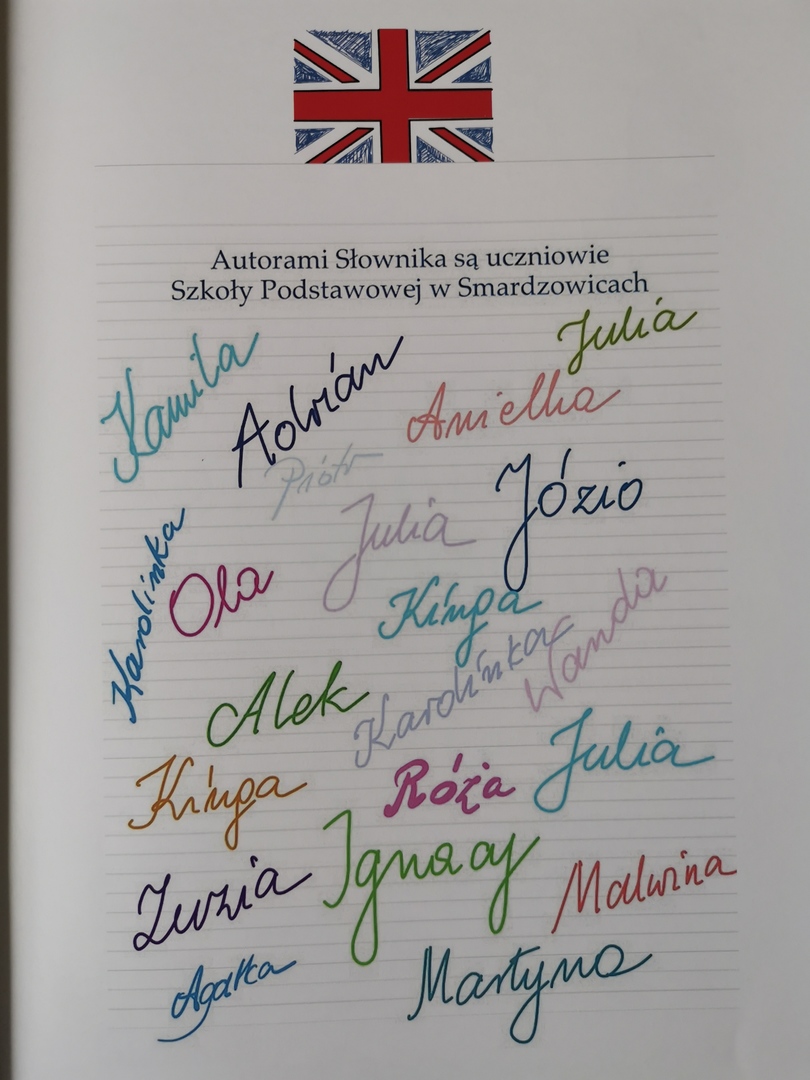 Autorami Słownika są uczniowie
Szkoły Podstawowej w Smardzowicach
Julia
Kamila
Adrian
Anielka
Piotr
Józio
Julia
Karolinka
Ola
Kinga
Wanda
Alek
Karolinka
Kinga
Róża
Julia
Zuzia
Ignacy
Malwina
Agatka
Martyna